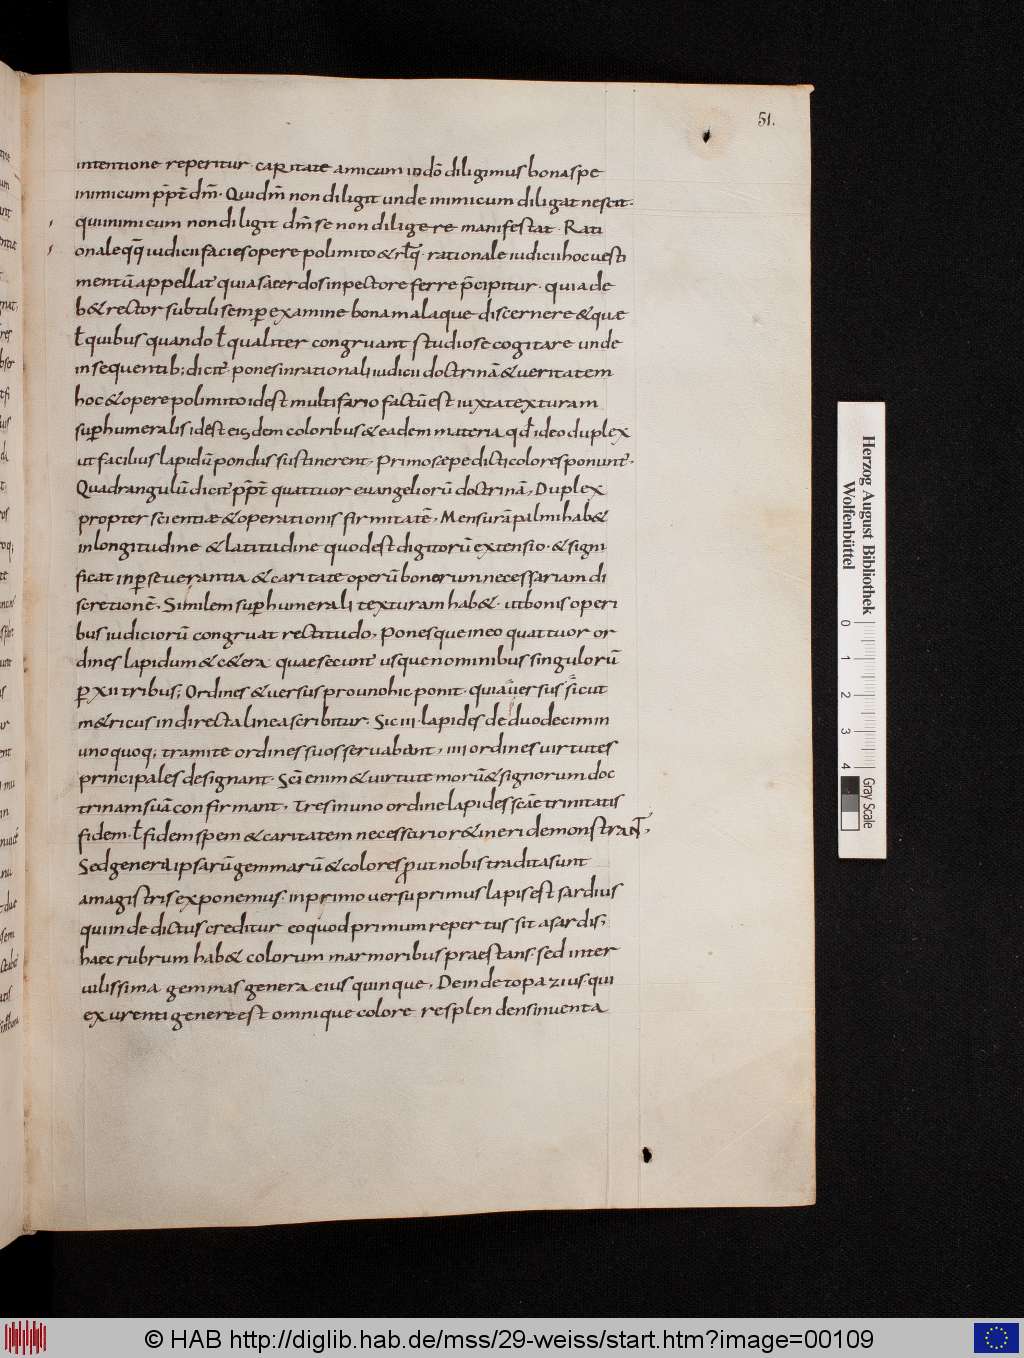 51.
intentione reperitur. caritate amicum in dō diligimus bonaspe
inimicum ꝓpt̄ dm̄. Qui dm̄ non diligit unde inimicum diligat nescit.
qui inimicum non diligit dm̄ se non diligere manifestat. Rati
onale qq̄ iudicii facies opere polimito & rłq̄. rationale iudicii hoc uesti
mentū appellat quia sacerdos in pectore ferre p̄cipitur. quia de
b& rector subtili semꝑ examine bona malaque discernere & quae
ł quibus quando ł qualiter congruant studiose cogitare unde
in sequentib; dicit̄. pones in rationali iudicii doctrinā & ueritatem
hoc & opere polimito idest multifario factū est iuxta texturam
suꝑhumeralis id est eisdem coloribus & eadem materia qđ ideo duplex
ut facilius lapidū pondus sustinerent. Primo saepe dicti colores ponunt̄.
Quadrangulū dicit̄ ꝓpt̄ quattuor euangeliorū doctrinā, Duplex
propter scientiae & operationis firmitatē, Mensurā palmi hab&
in longitudine & latitudine quod est digitorū extensio. & signi
ficat in ꝑseuerantia & caritate operū bonorum necessariam di
scretionē, Similem suꝑhumerali texturam hab&. ut bonis operi
bus iudiciorū congruat rectitudo, Ponesque in eo quattuor or
dines lapidum & c&era quae secunt̄ usque nominibus singulorū
ꝑ xii tribus; Ordines & uersus pro uno hic ponit. quia uersus sicut
m&ricus in directa linea scribitur. Sic iii. lapides de duodecim in
uno quoq; tramite ordines suos seruabant, iiii ordines uirtutes
principales designant. Sc̄i enim & uirtute morū & signorum doc
trinam suā confirmant, Tres in uno ordine lapides sc̄ae trinitatis
fidem. ł fidem spem & caritatem necessario r&ineri demonstrant,
Sed genera ipsarū gemmarū & colores ꝓut nobis tradita sunt
a magistris exponemus. in primo uersu primus lapis est sardius
qui inde dictus creditur eo quod primum repertus sit a sardis,
haec rubrum hab& colorum marmoribus praestans. sed inter
uilissima gemmas genera eius quinque, Deinde topazius. qui
ex urenti genere est omnique colore resplendens inuenta
Herzog August Bibliothek
Wolfenbüttel
0 1 2 3 4
Gray Scale
© HAB http://diglib.hab.de/mss/29-weiss/start.htm?image=00109